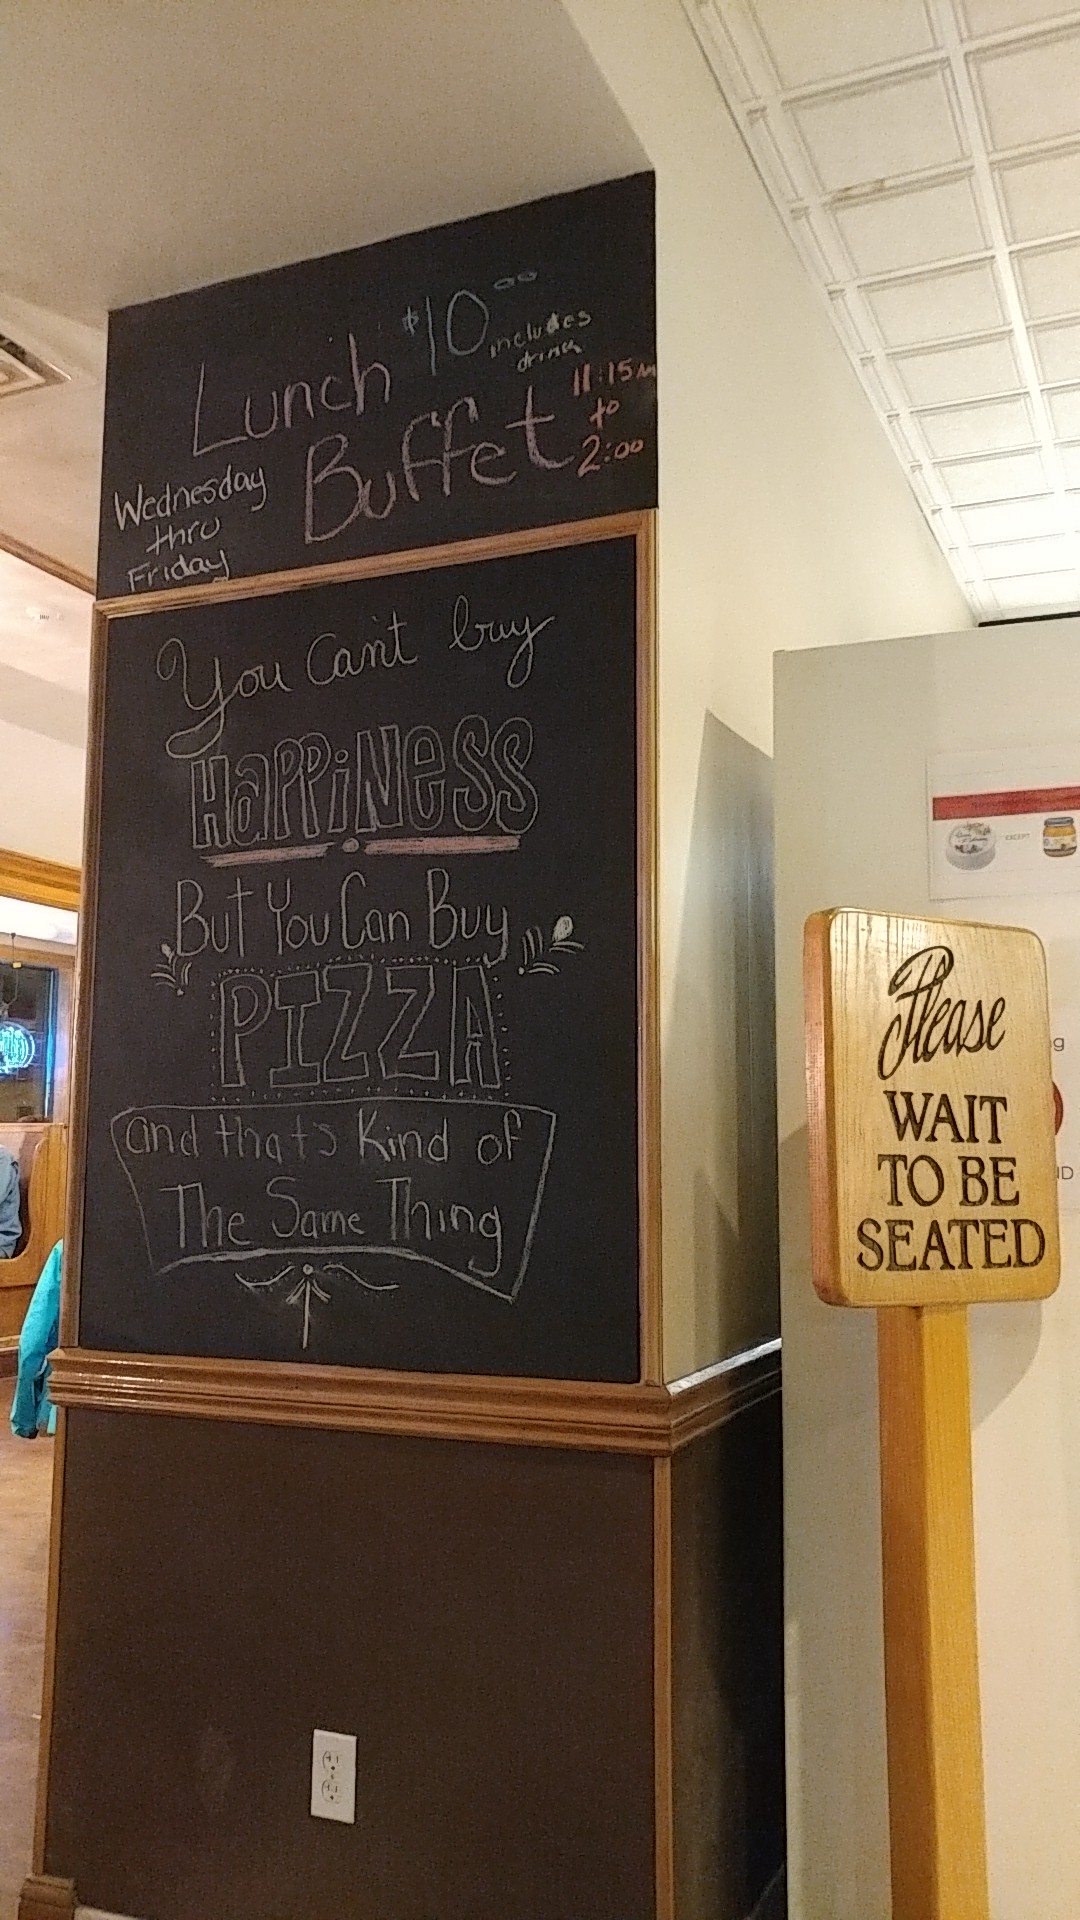 Lunch $10.00
includes
drink
Buffet
11:15
to
2:00
Wednesday
thru
Friday
You can't buy
HaPPiNeSS
But You Can Buy
PIZZA
and that's Kind of
The Same Thing
EXCEPT
Please
WAIT
TO BE
SEATED